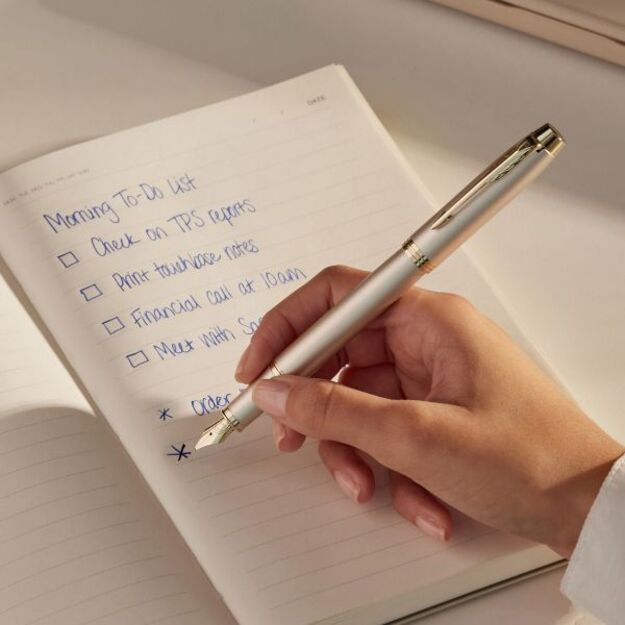 DATE
Morning To-Do List
Check on TPS reports
Print touchbase notes
Financial call at 10am
Meet with
* Order
*